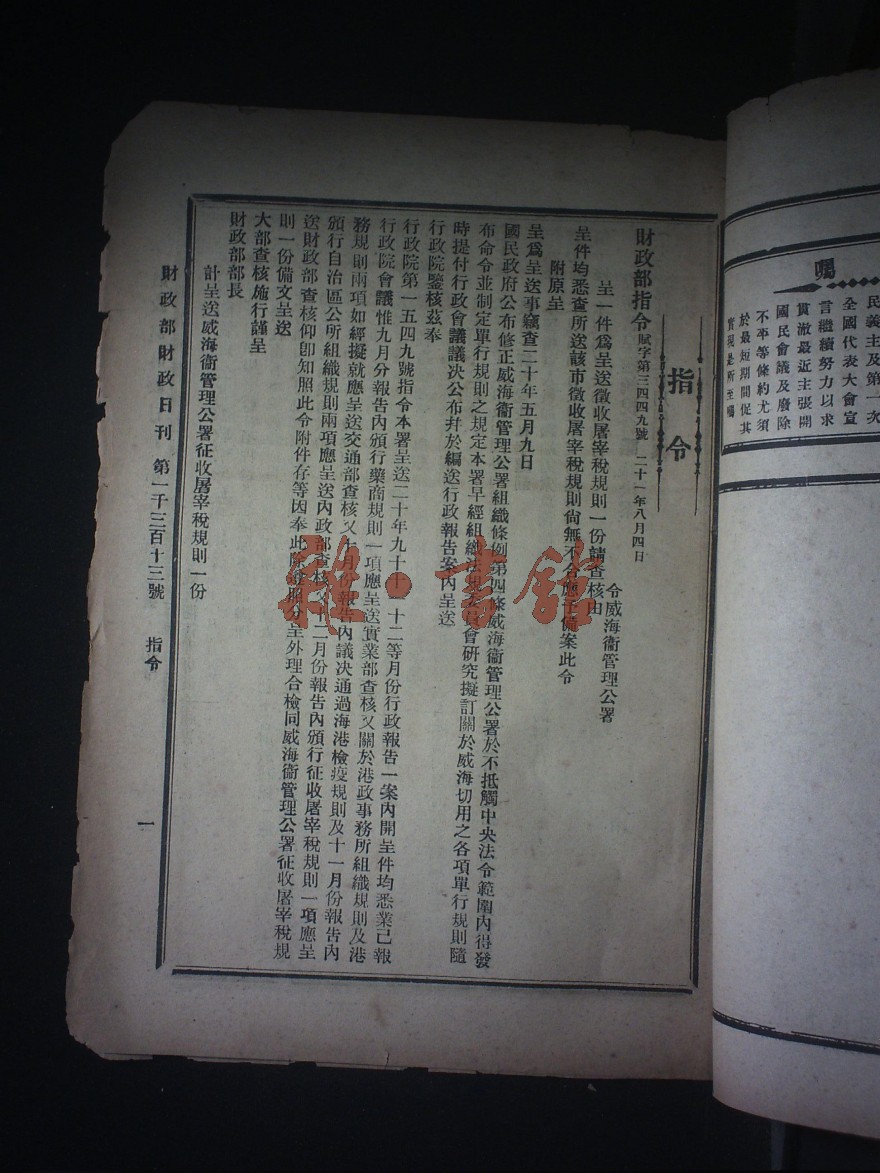 囑
民義主及第一次
全國代表大會宣
言繼續努力以求
貫澈最近主張開
國民會議及廢除
不平等條約尤須
於最短期間促其
實現是所至囑
指令
財政部指令 賦字第三四四九號 二十一年八月四日
令威海衞管理公署
呈一件爲呈送徵收屠宰稅規則一份請查核由
呈件均悉查所送該市徵收屠宰稅規則尙無不合應予備案此令
附原呈
呈爲呈送事竊查二十年五月九日
國民政府公布修正威海衞管理公署組織條例第四條威海衞管理公署於不抵觸中央法令範圍內得發
布命令並制定單行規則之規定本署早經組織法規委員會研究擬訂關於威海切用之各項單行規則隨
時提付行政會議議決公布幷於編送行政報告案內呈送
行政院鑒核茲奉
行政院第一五四九號指令本署呈送二十年九十十一十二等月份行政報告一案內開呈件均悉業已報
行政院會議惟九月分報告內頒行藥商規則一項應呈送實業部查核又關於港政事務所組織規則及港
務規則兩項如經擬就應呈送交通部查核又十月份報告內議決通過海港檢疫規則及十一月份報告內
頒行自治區公所組織規則兩項應呈送內政部查核又十二月份報告內頒行征收屠宰稅規則一項應呈
送財政部查核仰卽知照此令附件存等因奉此除遵照分呈外理合檢同威海衞管理公署征收屠宰稅規
則一份備文呈送
大部查核施行謹呈
財政部部長
計呈送威海衞管理公署征收屠宰稅規則一份
財政部財政日刊 第一千三百十三號 指令 一